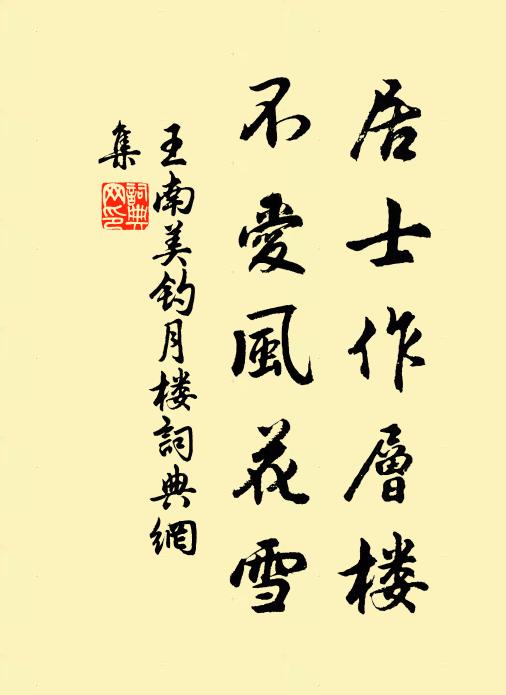 居士作層楼
不愛風花雪
王南美釣月楼詞典網
集
詞典
网印